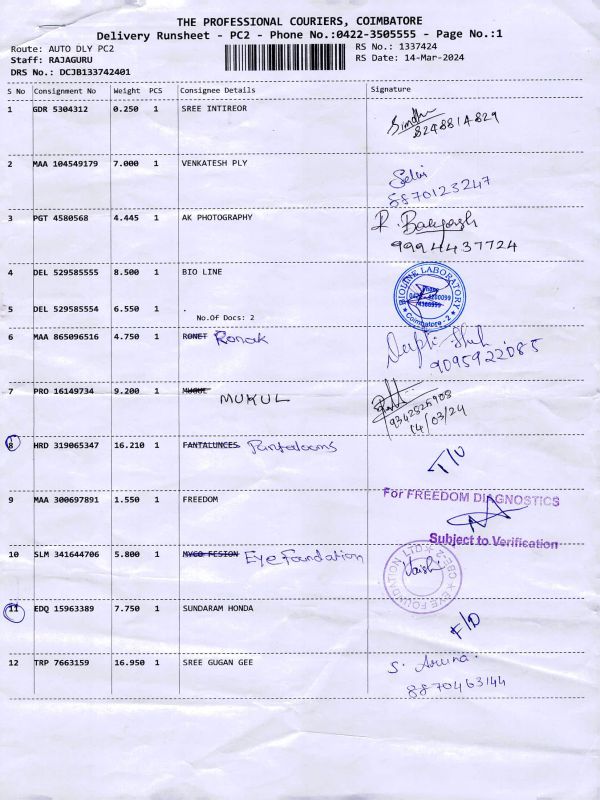 THE PROFESSIONAL COURIERS, COIMBATORE
Delivery Runsheet - PC2 - Phone No.:0422-3505555 - Page No.:1
Route: AUTO DLY PC2
Staff: RAJAGURU
DRS No.: DCJB133742401
RS No.: 1337424
RS Date: 14-Mar-2024
S No Consignment No Weight PCS Consignee Details Signature
1 GDR 5304312 0.250 1 SREE INTIREOR
Sindhu
8248814829
2 MAA 104549179 7.000 1 VENKATESH PLY
Selvi
8870123247
3 PGT 4580568 4.445 1 AK PHOTOGRAPHY
9994437724
4 DEL 529585555 8.500 1 BIO LINE
BIOLINE LABORATORY
Phone
Coimbatore - 2
5 DEL 529585554 6.550 1 .
No.Of Docs: 2
6 MAA 865096516 4.750 1 RONET Ronak
Deepti Shah
9095922085
7 PRO 16149734 9.200 1 MUGUL MUKUL
9342526908
14/03/24
8 HRD 319065347 16.210 1 FANTALUNCES Pantaloons
9 MAA 300697891 1.550 1 FREEDOM
For FREEDOM DIAGNOSTICS
Subject to Verification
10 SLM 341644706 5.800 1 MYCO FESION Eye Foundation
EYE FOUNDATION LTD CBE-2
Vaishi
11 EDQ 15963389 7.750 1 SUNDARAM HONDA
F/D
12 TRP 7663159 16.950 1 SREE GUGAN GEE
S. Aruna.
8870463144